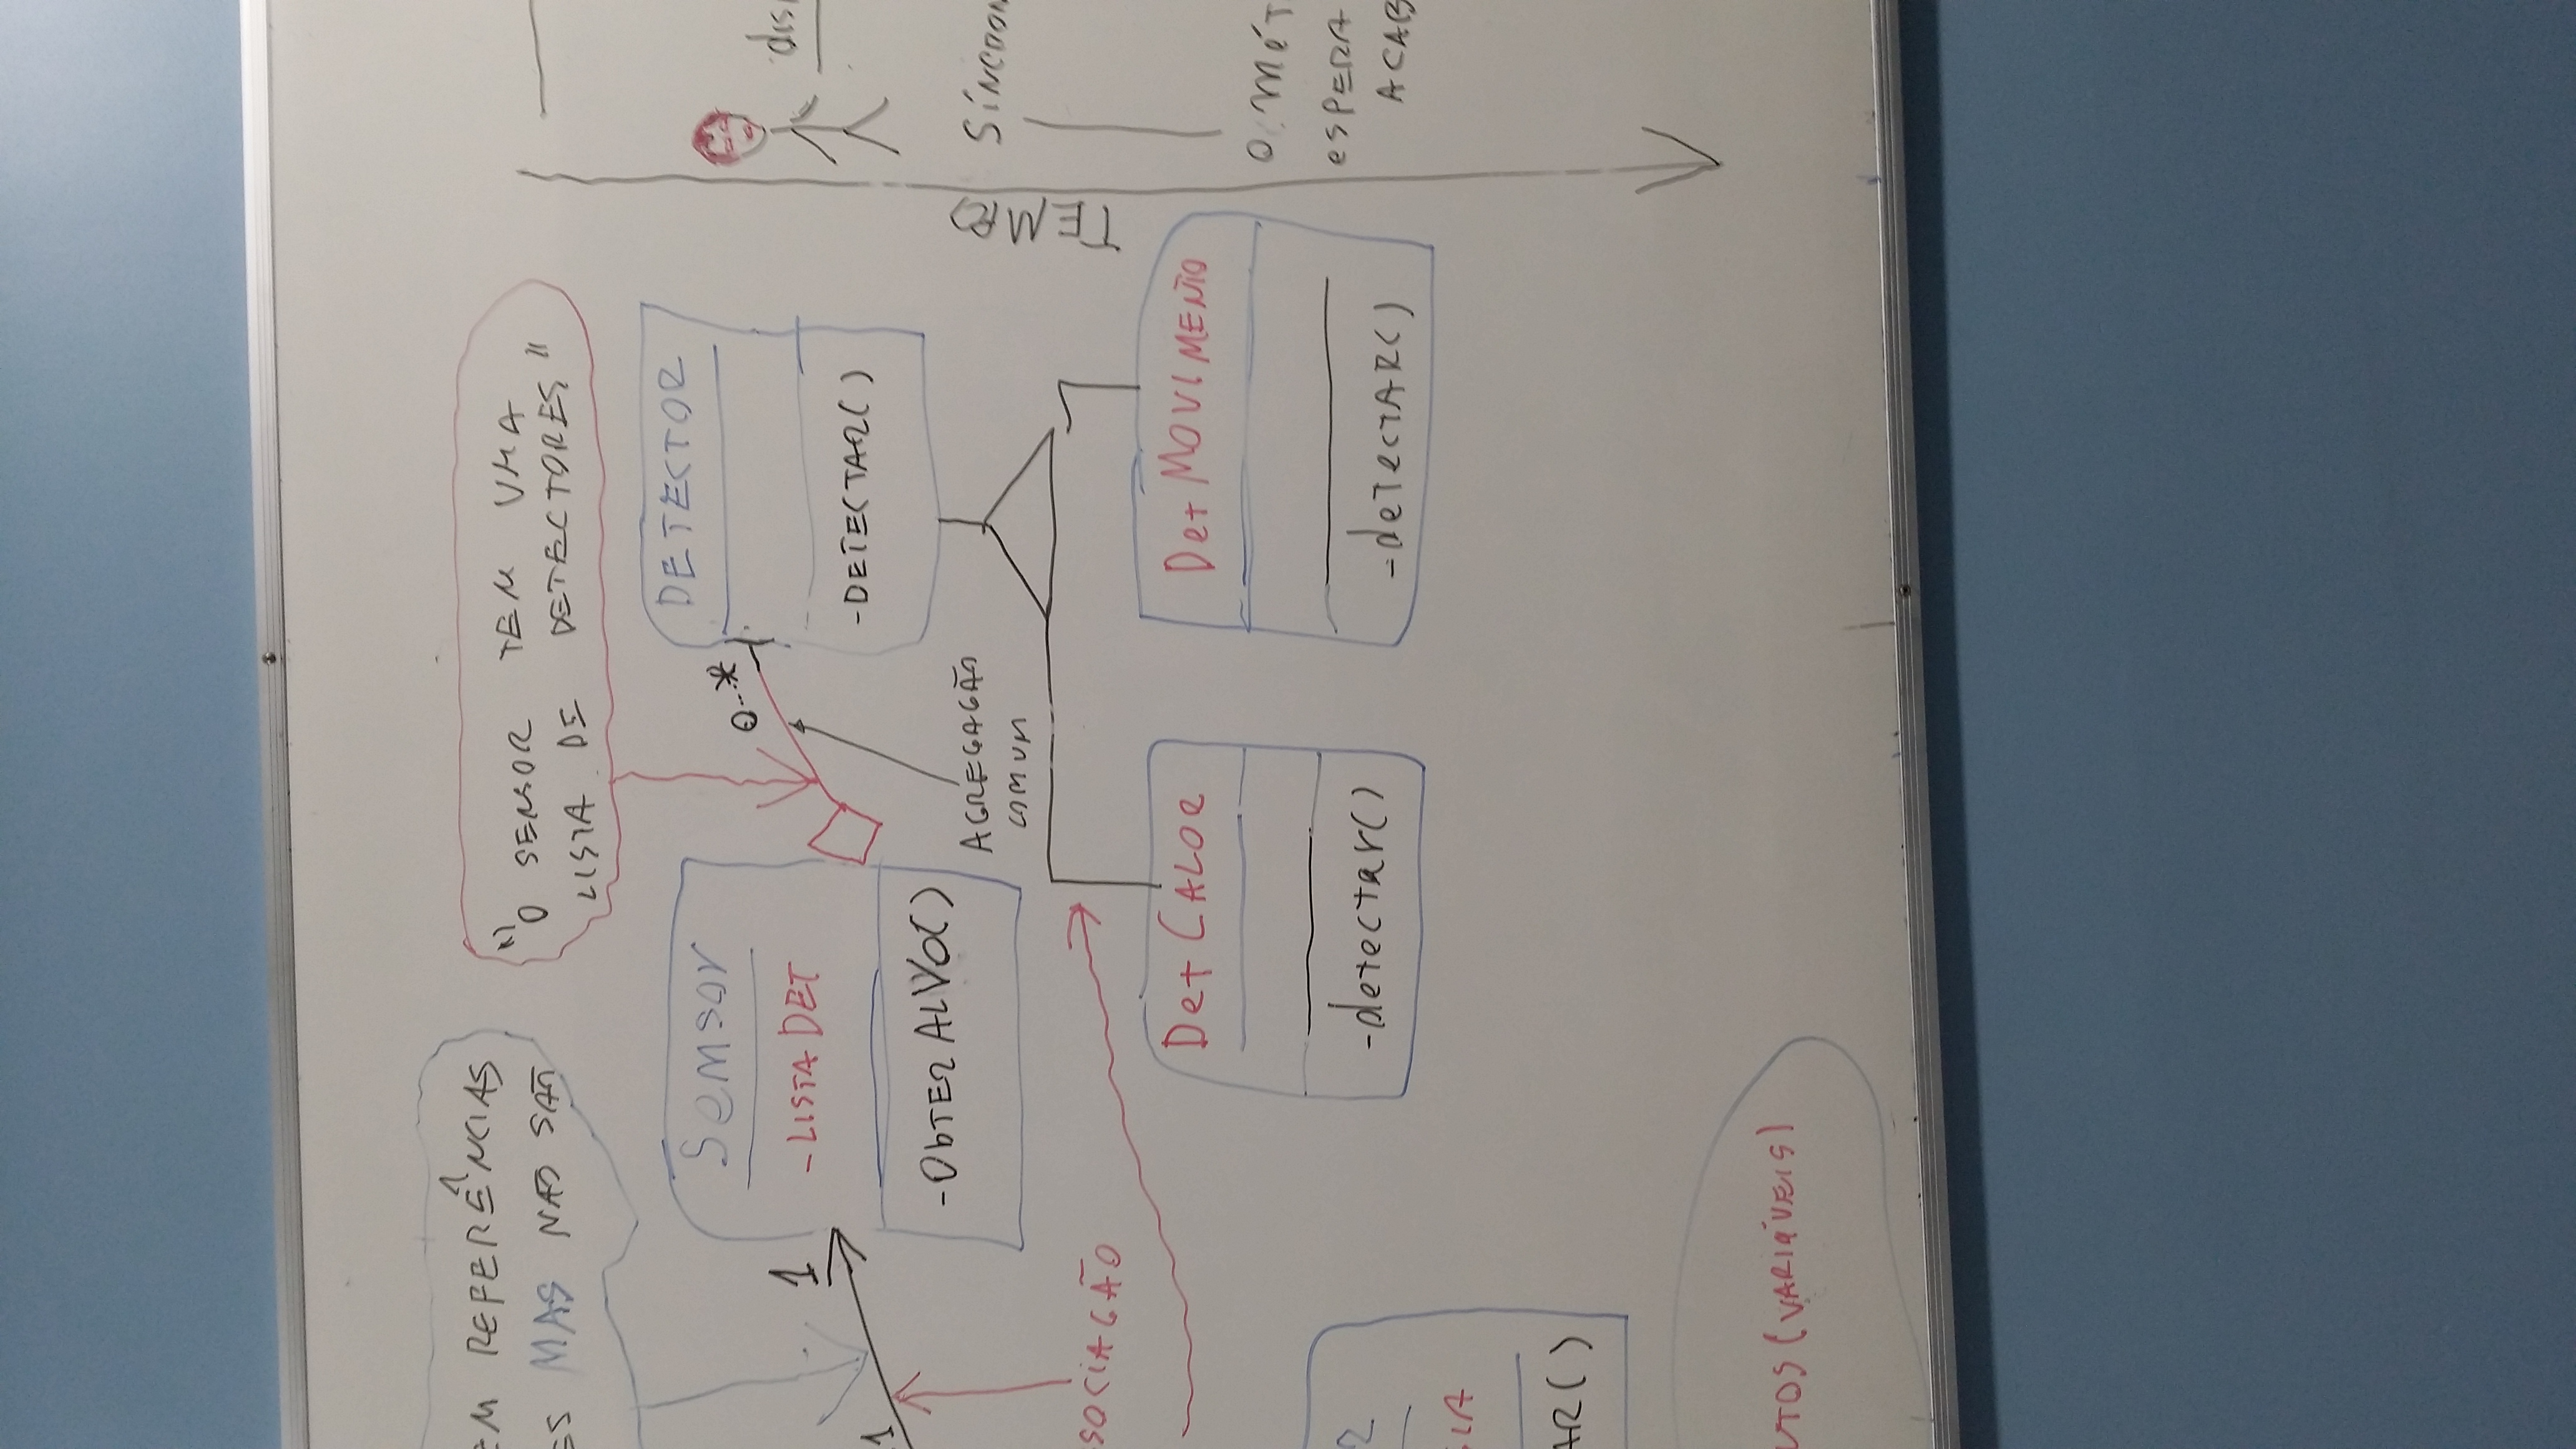 EM REFERÊNCIAS
ES MAS NÃO SÃO
"O SENSOR TEM UMA
LISTA DE DETECTORES"
Sensor
- LISTA DET
- ObTER ALVO()
1
1
0..*
DETECTOR
- DETECTAR()
AGREGAÇÃO
COMUM
SOCIAÇÃO
Det CALOR
- detectar()
Det MOVIMENTO
- detectAR()
R
GIA
AR()
UTOS (VARIÁVEIS)
TEMPO
dis
SÍNCRON
O MÉT
ESPERA
ACAB